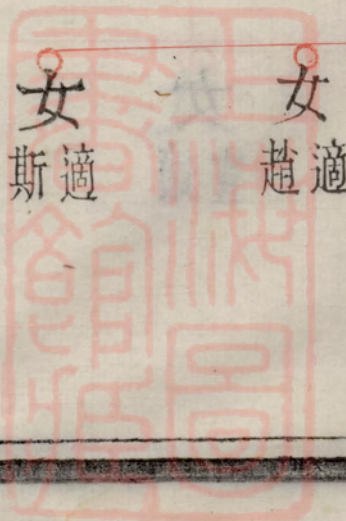 女
適趙
女
適斯